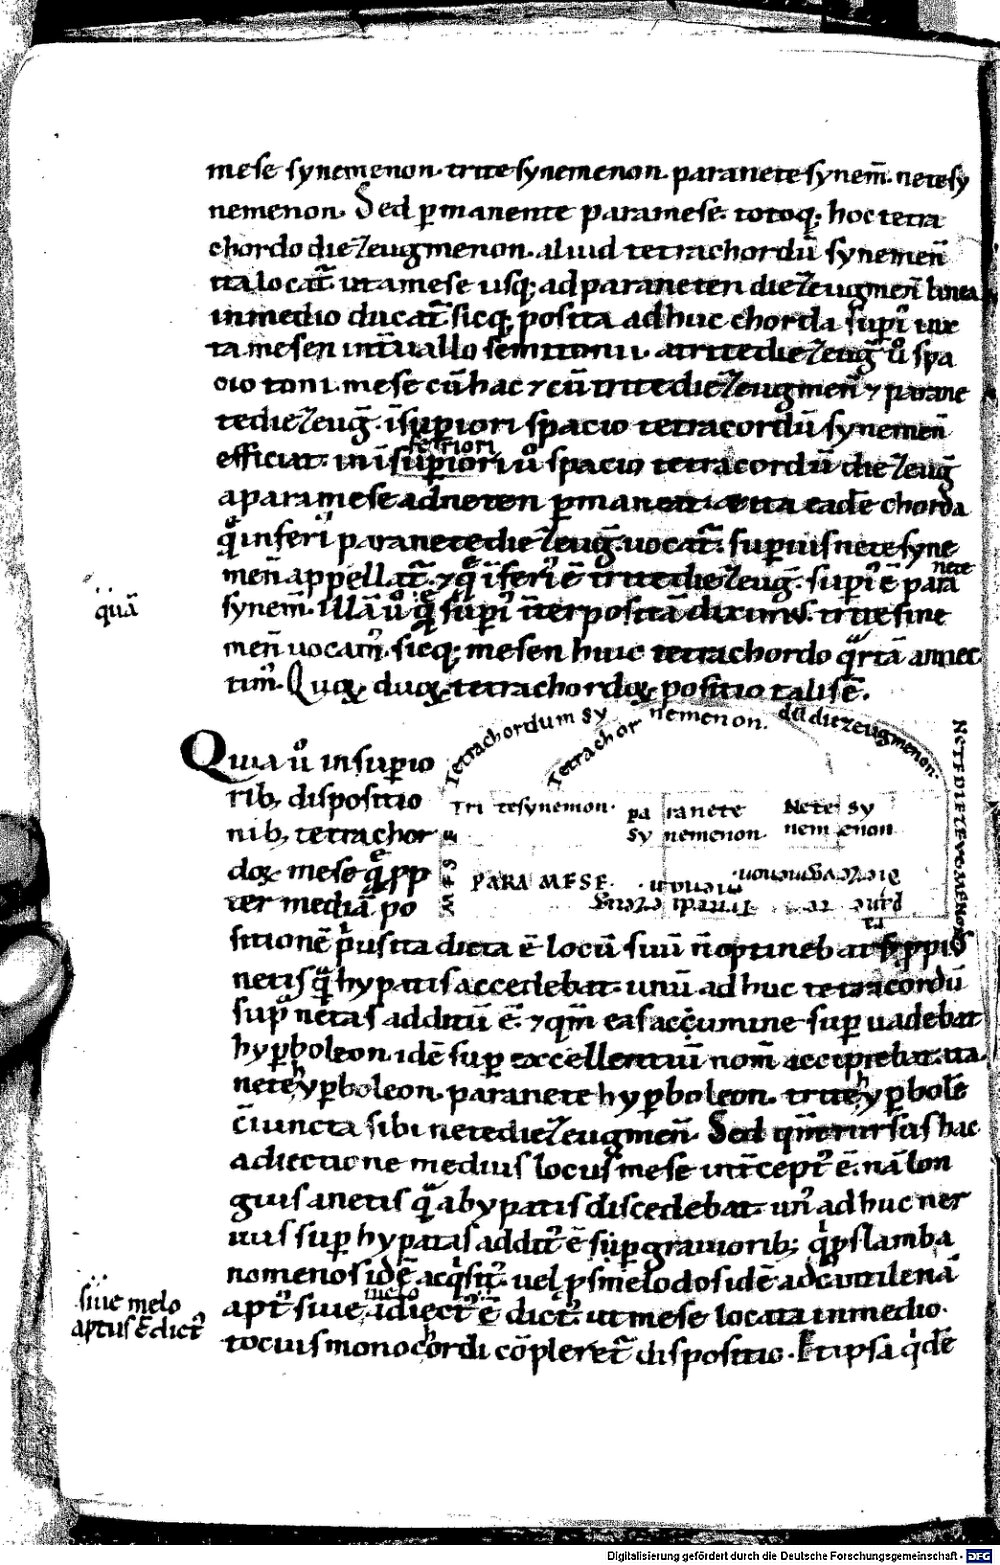 mese synemenon. trite synemenon. paranete synem̄. nete sy
nemenon. Sed ꝑmanente paramese. totoq; hoc tetra
chordo diezeugmenon. aliud tetrachordū synemen̄
ita locat̄. ut a mese usq; ad paraneten diezeugmen̄ linea
in medio ducat̄. sicq; posita adhuc chorda suꝑi iux
ta mesen int̄uallo semitonii. a trite diezeuḡ ů spa
cio toni. mese cū hac ⁊ cū trite diezeugmen̄ ⁊ parane
te diezeuḡ. ī suꝑiori spacio tetracordū synemen̄
feriori
efficiat. in īsuꝑiori ů spacio tetracordū diezeuḡ
a paramese ad neten ꝑmaneat. ita eadē chorda
inferi paranete diezeuḡ. uocat̄. suꝑius nete syne
nete
men̄ appellat̄. ⁊ īferi ē trite diezeuḡ. suꝑi ē para
quā
synem̄. Illā ů suꝑi īterpositā diximus. trite sine
men̄ uocam᷒. sicq; mesen huic tetrachordo q̄rtā annec
tim᷒. Quoꝝ duoꝝ tetrachordoꝝ positio talis ē.
Tetrachordum synemenon.
Tetrachor dū diezeugmenon.
NETE DIEZEVGMENON
Quia ů in suꝑio
rib; dispositio
nib; tetrachor
doꝝ mese ꝓp
ter mediā po
Trite synemenon.
paranete
synemenon
Nete sy
nemenon
MESE
PARAMESE.
sitionē p̄usita dicta ē locū suū n̄ optinebat
netis hypatis accedebat. unū adhuc tetracordū
suꝑ netas additū ē. ⁊ qm̄ eas accumine suꝑuadebat
hyꝑboleon. idē suꝑexcellentiū nom̄ accipiebat. ita
nete hyꝑboleon. paranete hyꝑboleon. trite hyꝑboleō
c̄iuncta sibi nete diezeugmen̄. Sed qm̄ rursus hac
adiectione medius locus mese int̄cept᷒ ē. nā lon
gius a netis q̄ a hypatis discedebat. un᷒ adhuc ner
uus suꝑ hypatas addit᷒ ē suꝑgrauiorib;
nomenos idē
melo
siue melo
aptus ē dict᷒
apt᷒ siue adiect᷒ ē dict᷒. ut mese locata in medio.
h
tocius monocordi cōpleret̄ dispositio. Et ipsa q̇dē
Digitalisierung gefördert durch die Deutsche Forschungsgemeinschaft - DFG